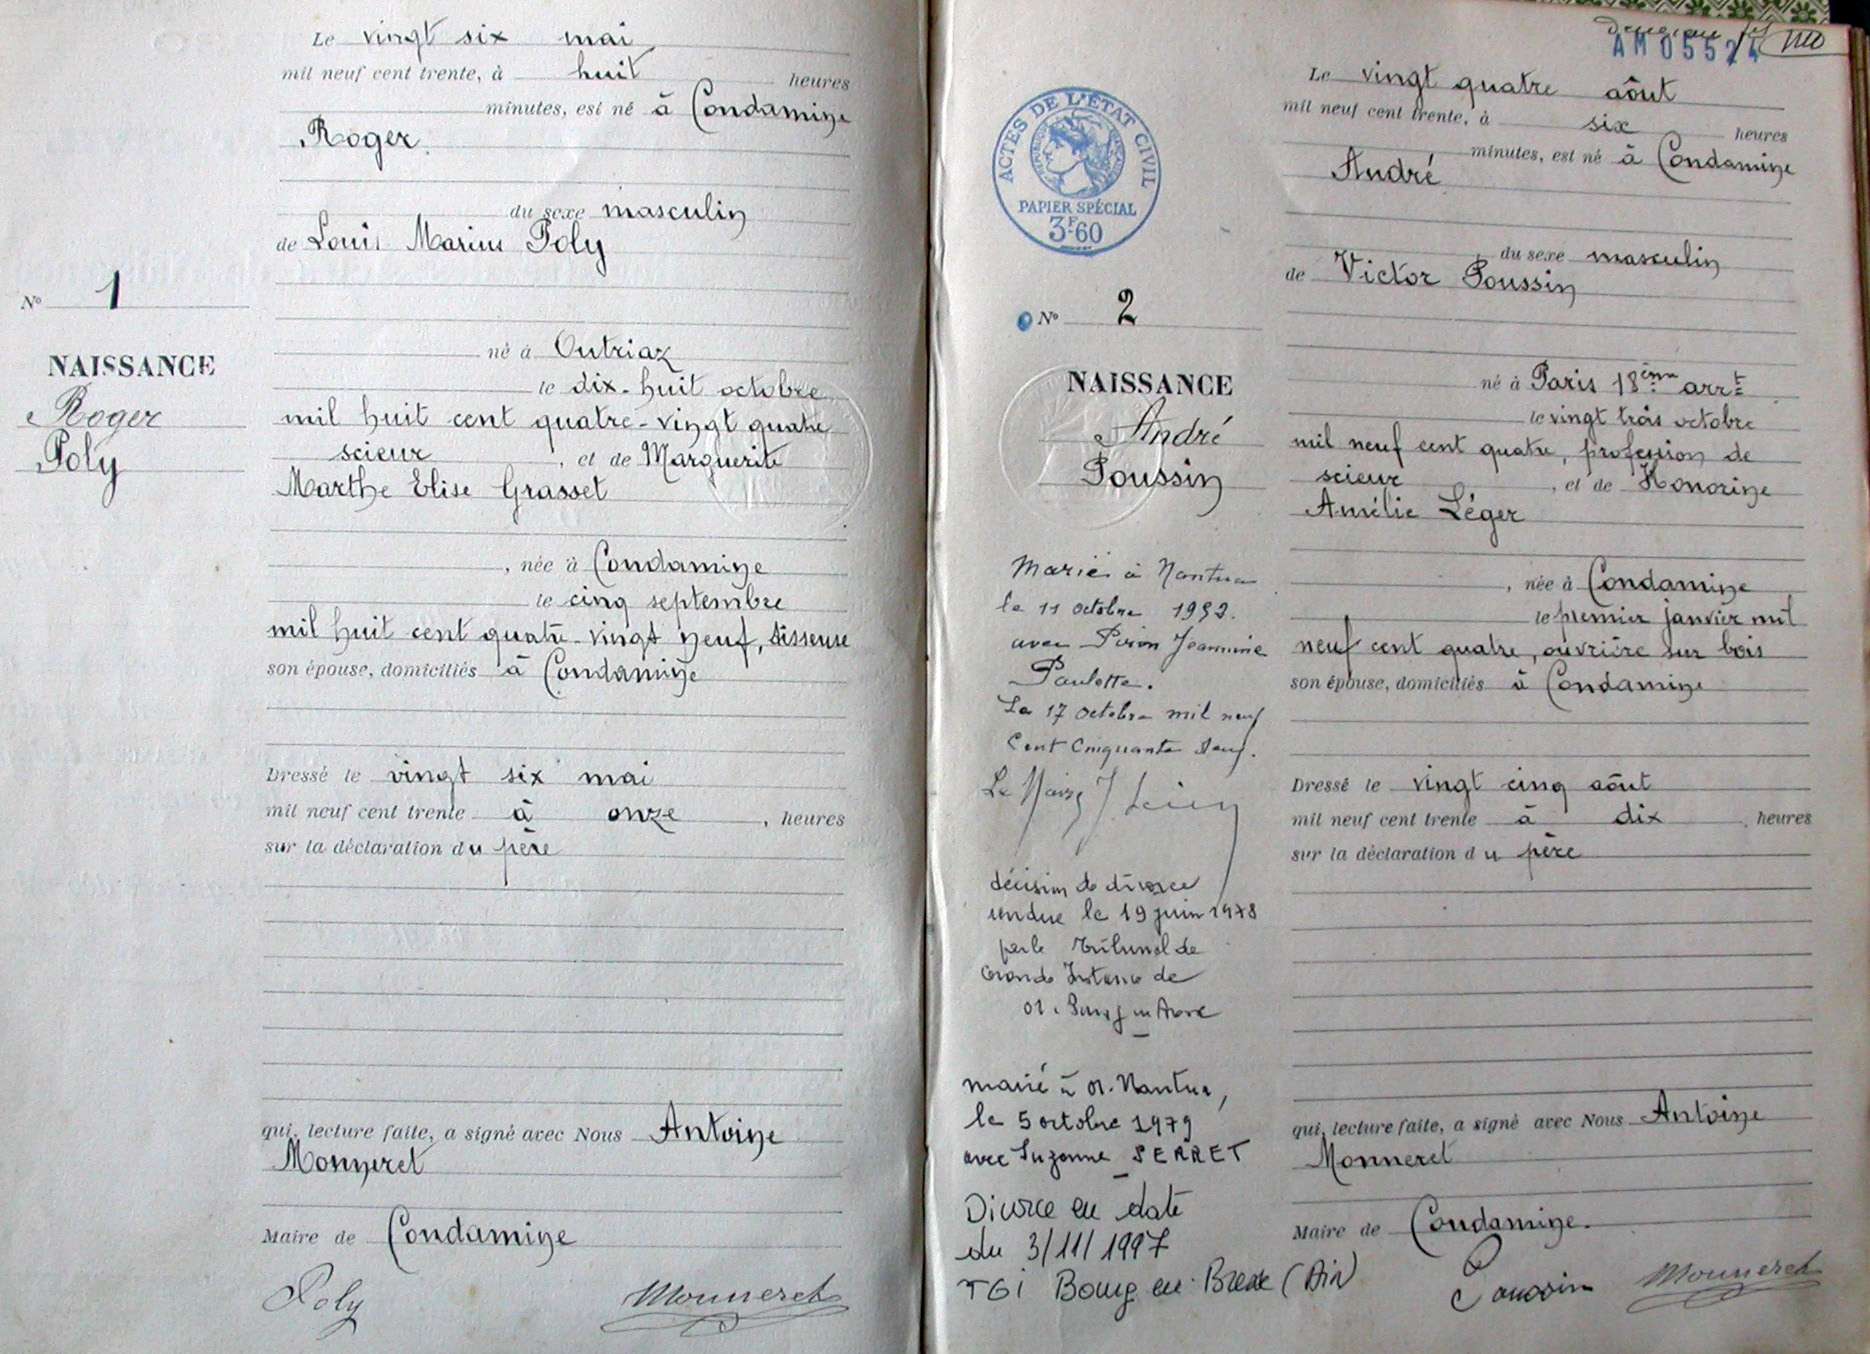 Le vingt six mai
mil neuf cent trente, à huit heures
minutes, est né à Condamine
Roger.
du sexe masculin
de Louis Marius Poly
N° 1
NAISSANCE
Roger
Poly
né à Outriaz
le dix-huit octobre
mil huit cent quatre-vingt quatre
scieur, et de Marguerite
Marthe Elise Grasset
, née à Condamine
le cinq septembre
mil huit cent quatre-vingt neuf, tisseuse
son épouse, domiciliés à Condamine
Dressé le vingt six mai
mil neuf cent trente à onze, heures
sur la déclaration du père
qui, lecture faite, a signé avec Nous Antoine
Monneret
Maire de Condamine
Poly Monneret
AM05524
ACTES DE L'ÉTAT CIVIL
PAPIER SPÉCIAL
3F60
N° 2
NAISSANCE
André
Poussin
Marié à Nantua
le 11 octobre 1952.
avec Piron Jeannine
Paulette.
Le 17 octobre mil neuf
cent cinquante deux.
Le Maire
décision de divorce
rendue le 19 juin 1978
par le Tribunal de
Grande Instance de
01. Bourg en Bresse
marié à 01. Nantua,
le 5 octobre 1979
avec Suzanne SERRET
Divorce en date
du 3/11/1997
TGI Bourg en Bresse (Ain)
Le vingt quatre août
mil neuf cent trente, à six heures
minutes, est né à Condamine
André
du sexe masculin
de Victor Poussin
né à Paris 18ème arrt
le vingt trois octobre
mil neuf cent quatre, profession de
scieur, et de Honorine
Amélie Léger
, née à Condamine
le premier janvier mil
neuf cent quatre, ouvrière sur bois
son épouse, domiciliés à Condamine
Dressé le vingt cinq août
mil neuf cent trente à dix, heures
sur la déclaration du père
qui, lecture faite, a signé avec Nous Antoine
Monneret
Maire de Condamine.
Poussin Monneret